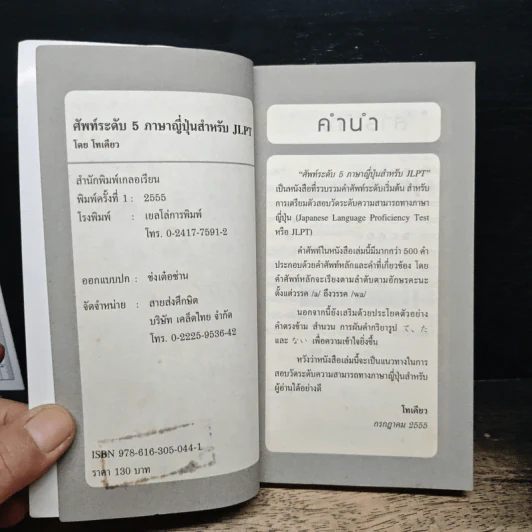 ศัพท์ระดับ 5 ภาษาญี่ปุ่นสำหรับ JLPT
โดย โทเคียว
สำนักพิมพ์เกลอเรียน
พิมพ์ครั้งที่ 1 : 2555
โรงพิมพ์ : เยลโล่การพิมพ์
โทร. 0-2417-7591-2
ออกแบบปก : ช่งเต๋อซ่าน
จัดจำหน่าย : สายส่งศึกษิต
บริษัท เคล็ดไทย จำกัด
โทร. 0-2225-9536-42
ISBN 978-616-305-044-1
ราคา 130 บาท
คำนำ
"ศัพท์ระดับ 5 ภาษาญี่ปุ่นสำหรับ JLPT"
เป็นหนังสือที่รวบรวมคำศัพท์ระดับเริ่มต้น สำหรับ
การเตรียมตัวสอบวัดระดับความสามารถทางภาษา
ญี่ปุ่น (Japanese Language Proficiency Test
หรือ JLPT)
คำศัพท์ในหนังสือเล่มนี้มีมากกว่า 500 คำ
ประกอบด้วยคำศัพท์หลักและคำที่เกี่ยวข้อง โดย
คำศัพท์หลักจะเรียงตามลำดับตามอักษรคะนะ
ตั้งแต่วรรค /a/ ถึงวรรค /wa/
นอกจากนี้ยังเสริมด้วยประโยคตัวอย่าง
คำตรงข้าม สำนวน การผันคำกริยารูป て, た
และ ない เพื่อความเข้าใจยิ่งขึ้น
หวังว่าหนังสือเล่มนี้จะเป็นแนวทางในการ
สอบวัดระดับความสามารถทางภาษาญี่ปุ่นสำหรับ
ผู้อ่านได้อย่างดี
โทเคียว
กรกฎาคม 2555